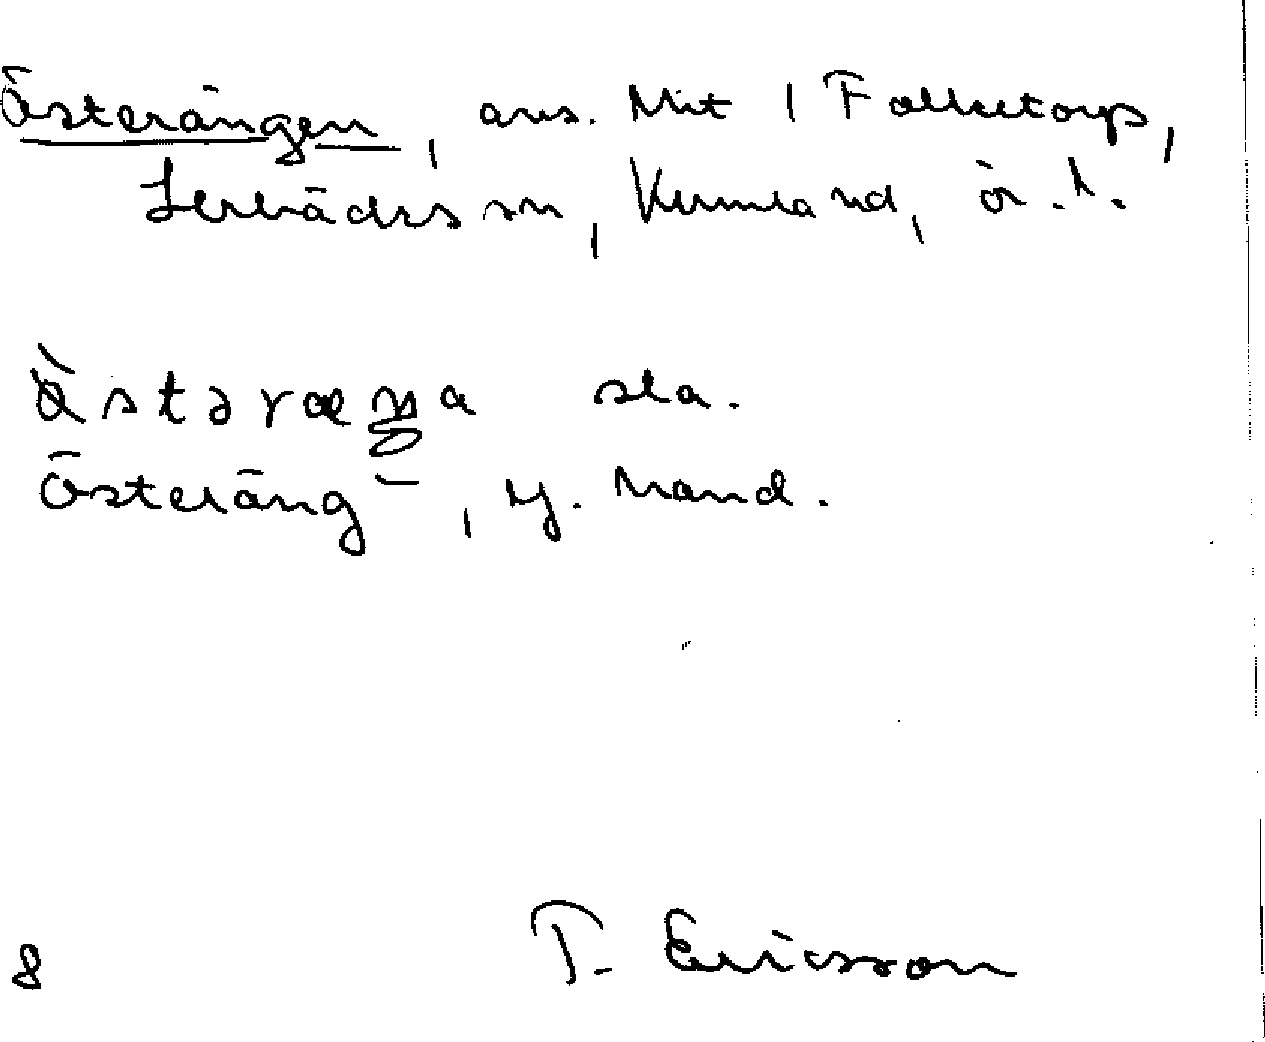 Österängen, avs. Mit 1 Folketorp,
Lerbäcks sn, Kumla hd, ör. l.
sta.
Österäng-, yj. hand.
8 T. Ericsson